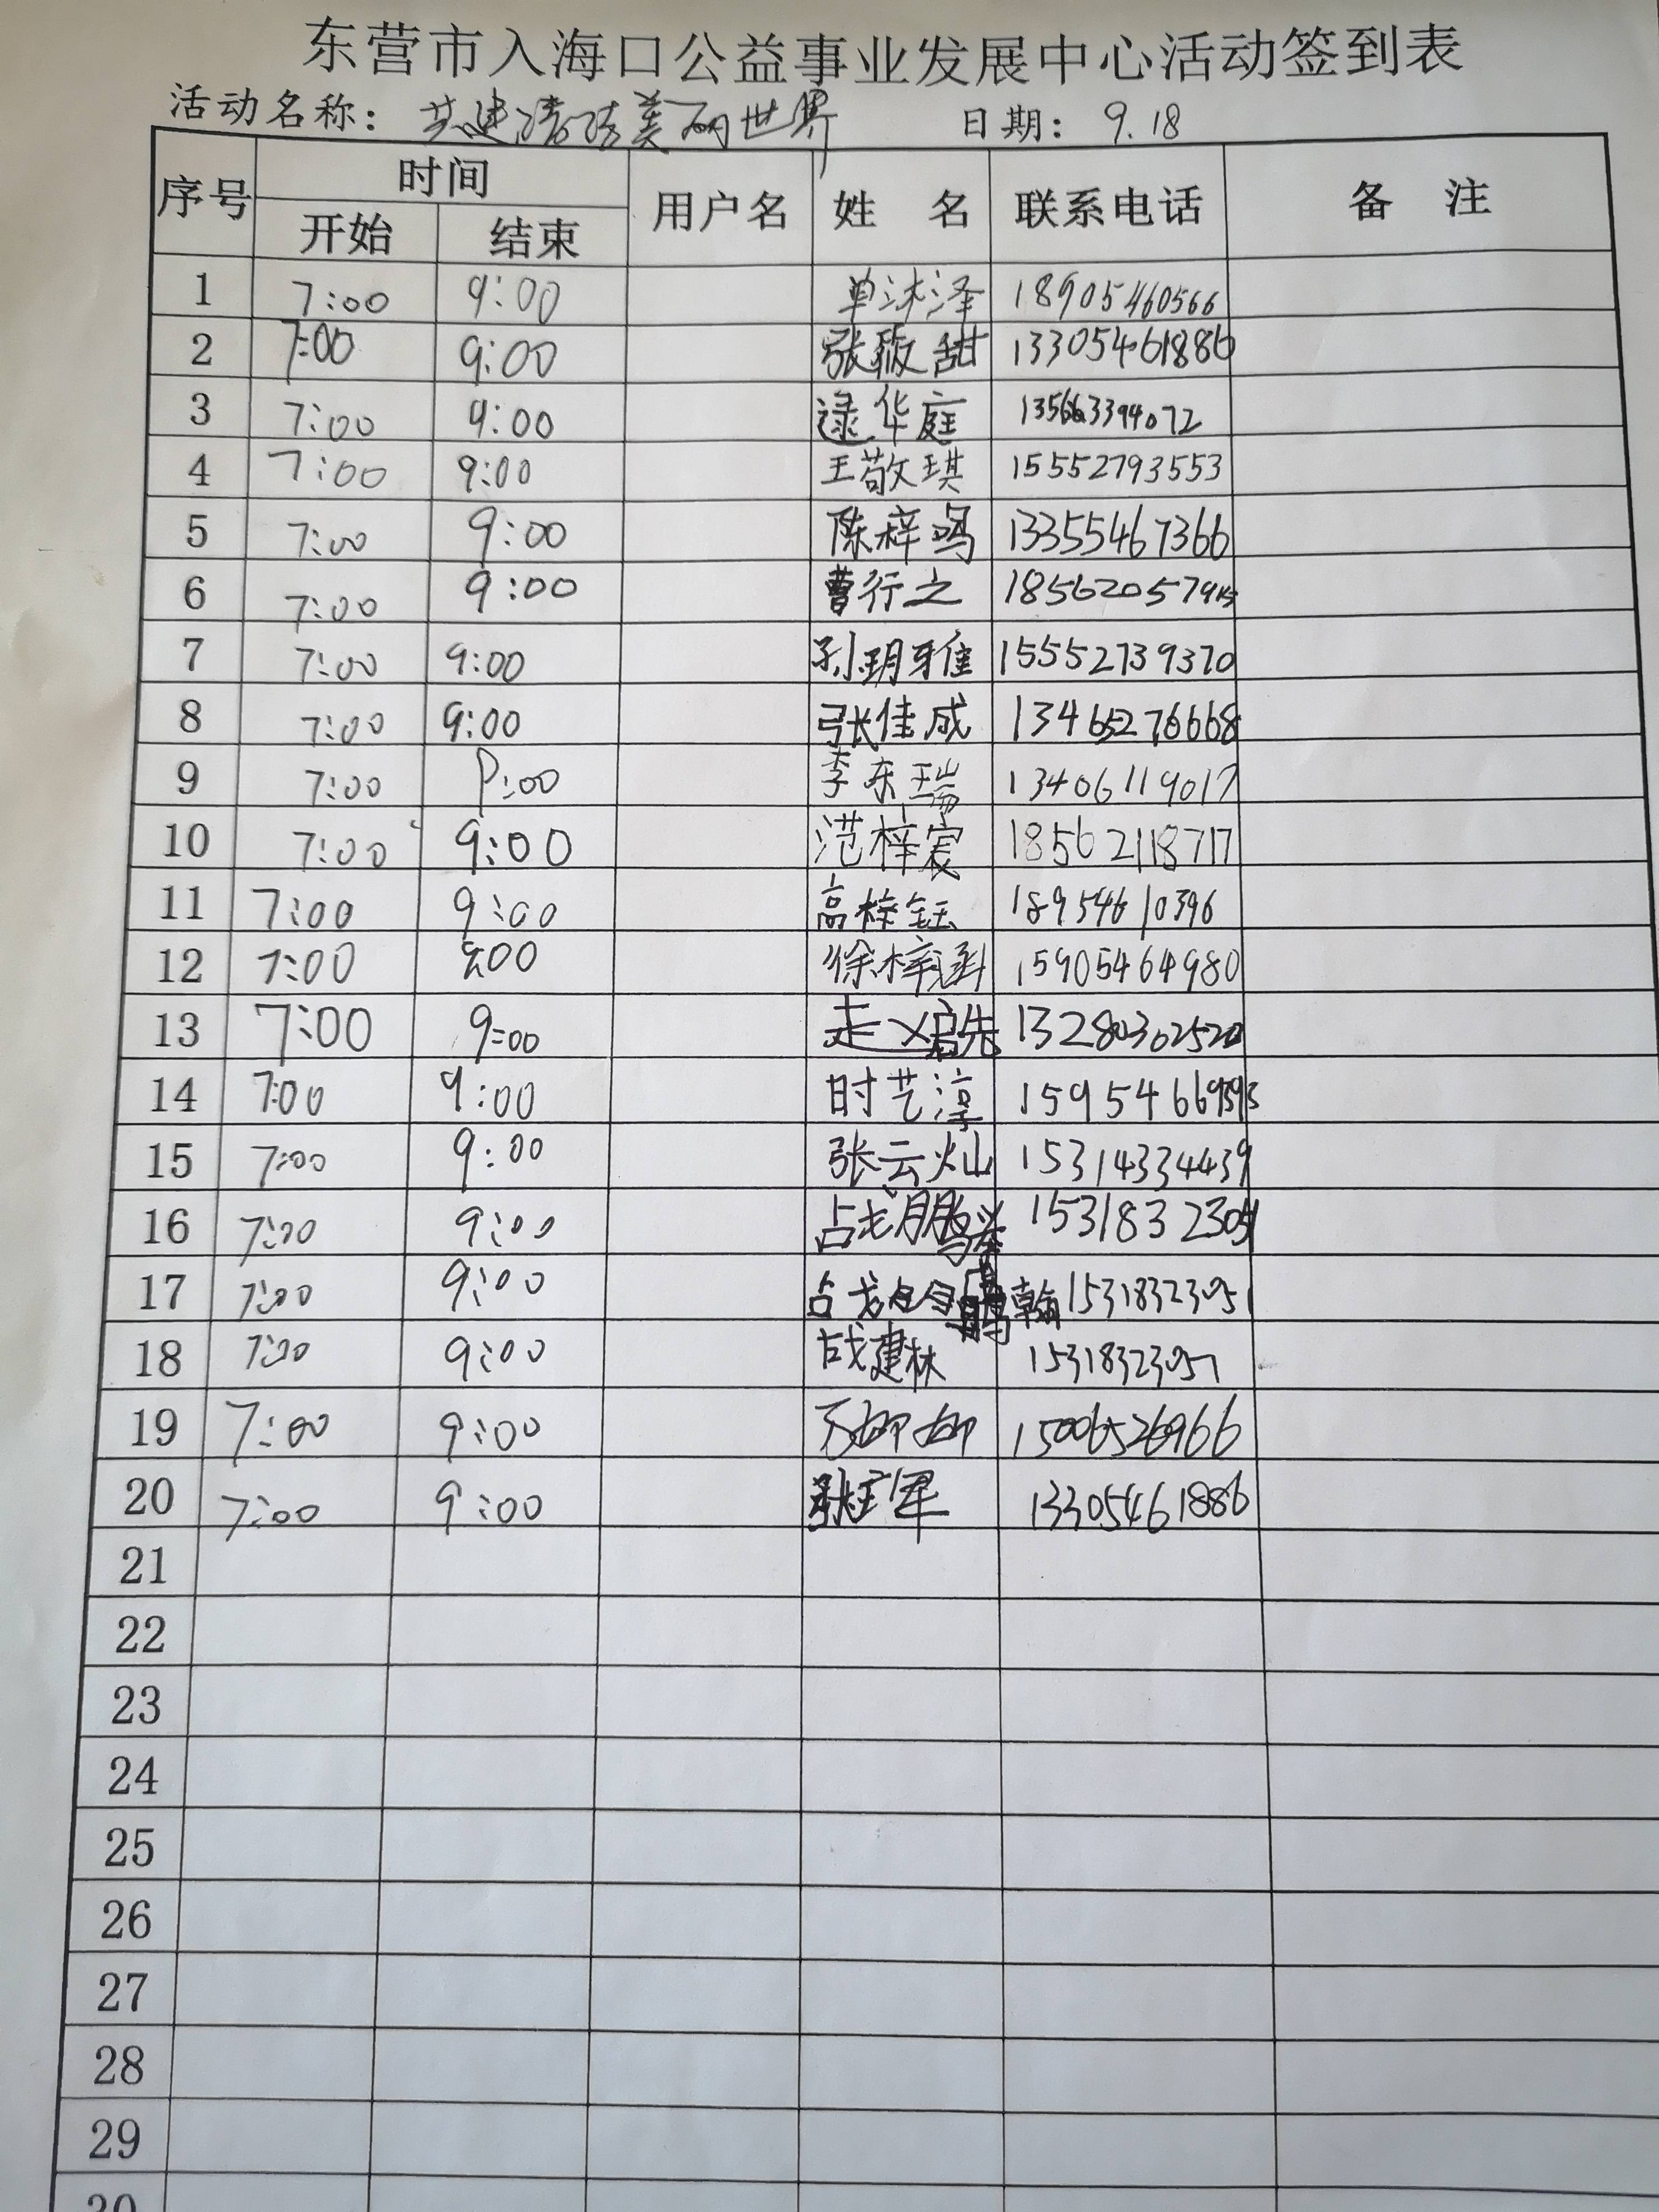 东营市入海口公益事业发展中心活动签到表
活动名称：共建清洁美丽世界 日期：9.18
序号 时间 用户名 姓 名 联系电话 备 注
开始 结束
1 7:00 9:00 单沐泽 18905460566
2 7:00 9:00 张 甜 13305461886
3 7:00 9:00 逯华庭 135663394072
4 7:00 9:00 王敬琪 15552793553
5 7:00 9:00 陈梓鸣 13355467366
6 7:00 9:00 曹行之
7 7:00 9:00 孙玥雅 15552739370
8 7:00 9:00 张佳成 13465276668
9 7:00 9:00 李东瑞 13406119017
10 7:00 9:00 范梓宸 18562118717
11 7:00 9:00 高梓钰 18954610396
12 7:00 9:00 徐梓涵 15905464980
13 7:00 9:00 13280302520
14 7:00 9:00 时艺淳
15 7:00 9:00 张云灿 15314334439
16 7:00 9:00 15318323051
17 7:00 9:00 15318323051
18 7:00 9:00 战建林 15318323051
19 7:00 9:00 15006526966
20 7:00 9:00 军 13305461886
21
22
23
24
25
26
27
28
29
30